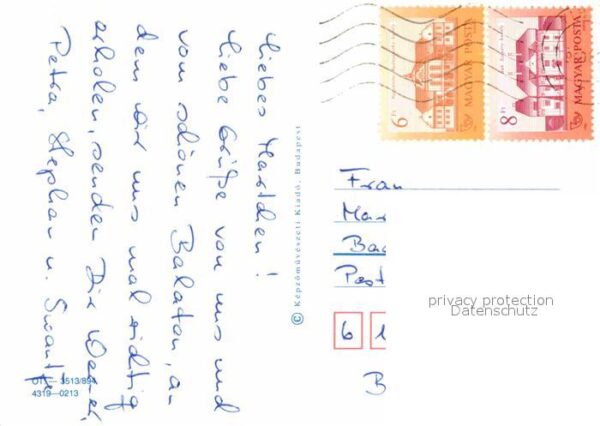 Liebes Mariechen!
Liebe Grüße von uns und
vom schönen Balaton, an
dem wir uns mal richtig
erholen, senden Dir Werner,
Petra, Stephan u. Swantje
© Képzőművészeti Kiadó, Budapest
OTI — 3513/894
4319—0213
6 Ft
MAGYAR POSTA
8 Ft
MAGYAR POSTA
Frau
Mar
Bad
Post
6 1
B
privacy protection
Datenschutz